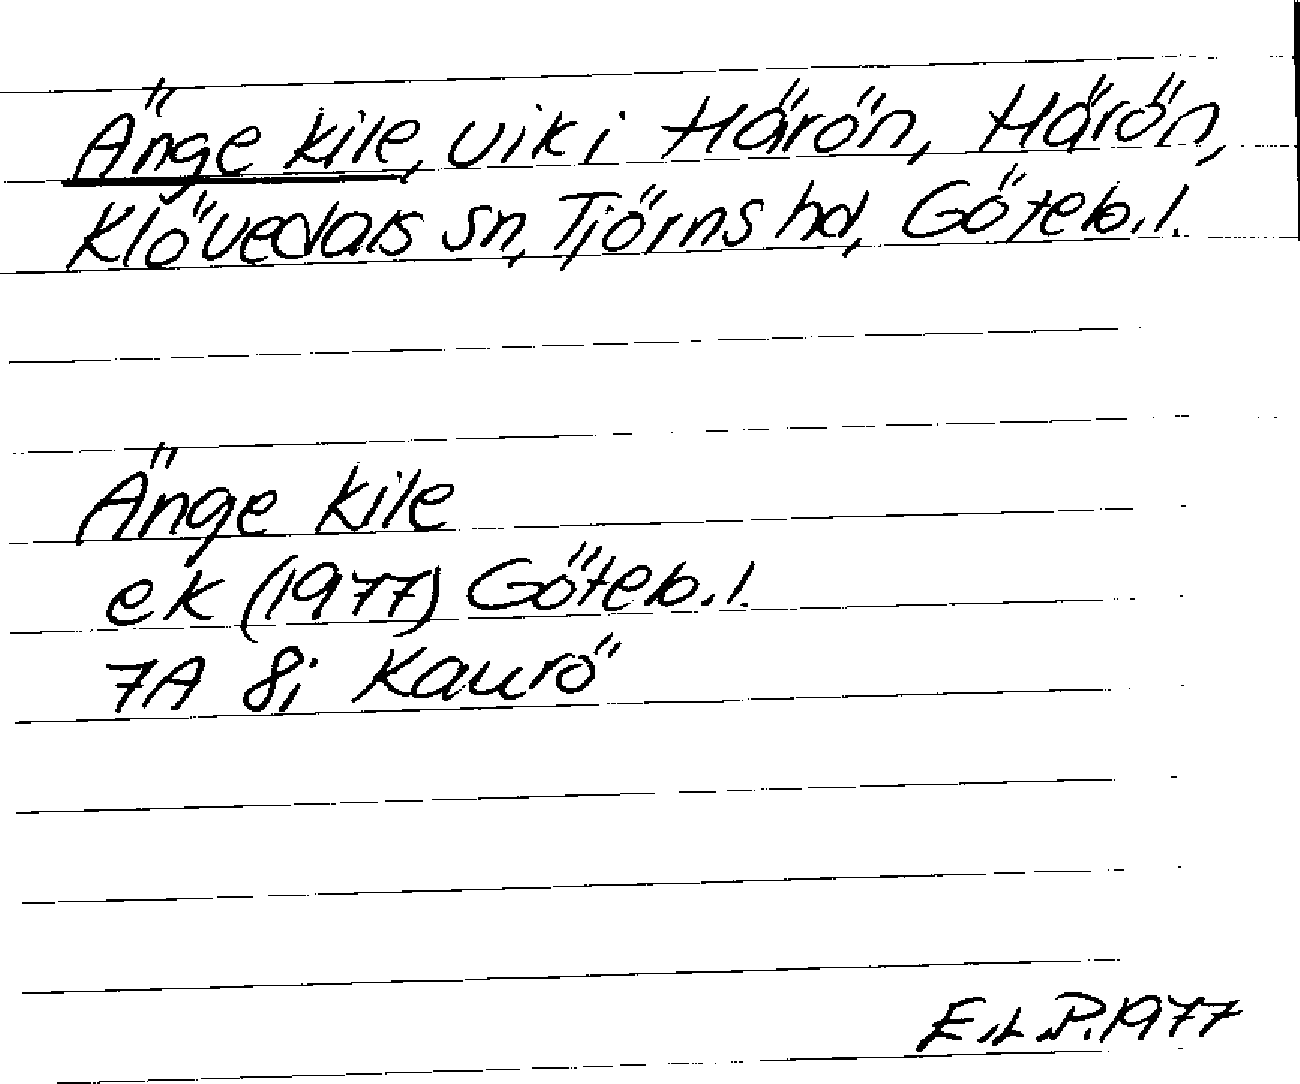 Änge kile, vik i Härön, Härön,
Klövedals sn, Tjörns hd, Göteb. l.
Änge kile
ek (1977) Göteb. l.
7A 8i Kaurö
E. L. P. 1977